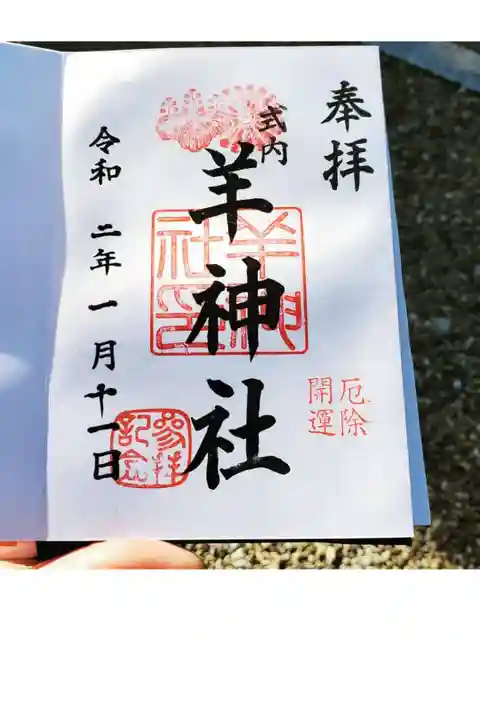 奉拝
式内
羊神社
羊神社印
厄除
開運
参拝
記念
令和二年一月十一日